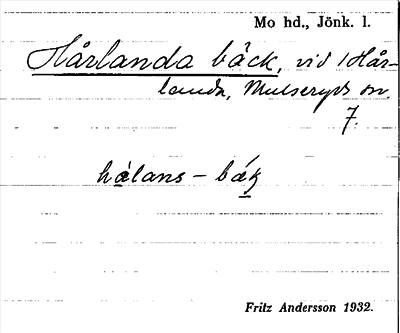 Mo hd., Jönk. l.
Hårlanda bäck, vid Hår-
landa, Mulseryds sn.
7.
hålans - bäk
Fritz Andersson 1932.